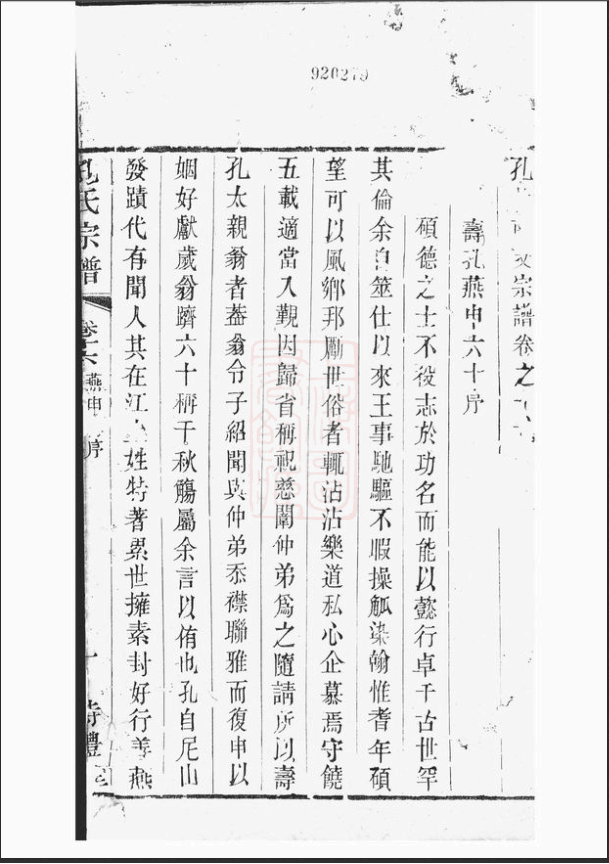 920279
孔 宗譜卷之
壽孔燕申六十序
碩德之士不役志於功名而能以懿行卓千古世罕
其倫余自筮仕以來王事馳驅不暇操觚染翰惟耆年碩
望可以風鄉邦勵世俗者輒沾沾樂道私心企慕焉守饒
五載適當入覲因歸省稱祝慈闈仲弟爲之隨請所以壽
孔太親翁者蓋翁令子紹聞與仲弟忝襟聯雅而復申以
姻好獻歲翁躋六十稱千秋觴屬余言以侑也孔自尼山
發蹟代有聞人其在江 姓特著累世擁素封好行善燕
孔氏宗譜 卷 六 燕申 序 一 詩禮